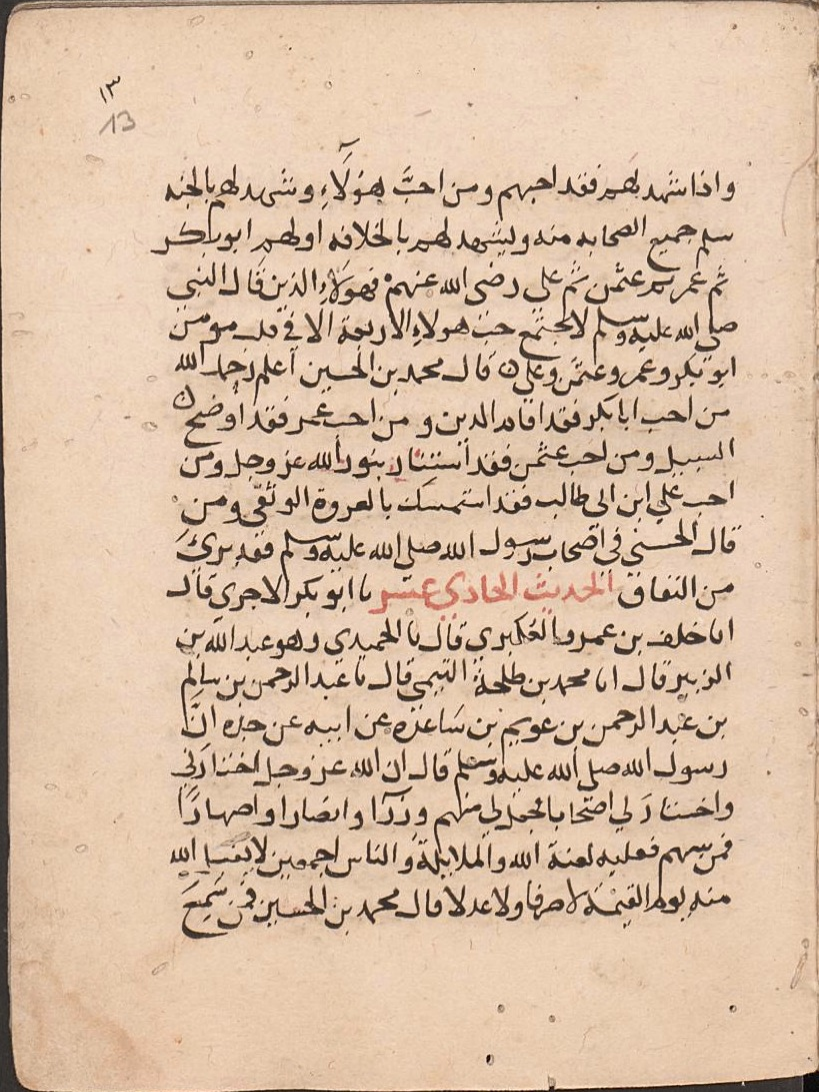 ١٣
13
واذا شهد لهم فقد احبهم ومن احبَّ هؤلآءِ وشهد لهم بالجنه
سلم جميع الصحابه منه وليشهد لهم بالخلافه اولهم ابو بكر
ثم عمر ثم عثمن ثم على رضى الله عنهم فهولاءِ الذين قال النبي
صلى الله عليه وسلم لا يجتمع حب هولاءِ الاربعة الا في قلب مومن
ابو بكر وعمر وعثمن وعلى ن قال محمد بن الحسين اعلم رحمك الله
من احب ابا بكر فقد اقام الدين ومن احب عمر فقد اوضح
السبيل ومن احب عثمن فقد استنار بنور الله عز وجل ومن
احب علي ابن ابى طالب فقد استمسك بالعروة الوثقى ومن
قال الحسنى فى اصحاب رسول الله صلى الله عليه وسلم فقد برئ
من النفاق الحديث الحادي عشر نا ابو بكر الاجري قال
انا خلف بن عمرو العُكبري قال نا الحميدي وهو عبد الله بن
الزبير قال انا محمد بن طلحة التيمى قال نا عبد الرحمن بن سالم
بن عبد الرحمن بن عويم بن ساعده عن ابيه عن جده انَّ
رسول الله صلى الله عليه وسلم قال ان الله عز وجل اختارنى
واختار لي اصحابا فجعل لي منهم وزرآ وانصارا واصهارًا
فمن سبهم فعليه لعنة الله والملايكة والناس اجمعين لا يقبل الله
منه يوم القيمة صرفا ولا عدلا قال محمد بن الحسين فمن سَمِعَ